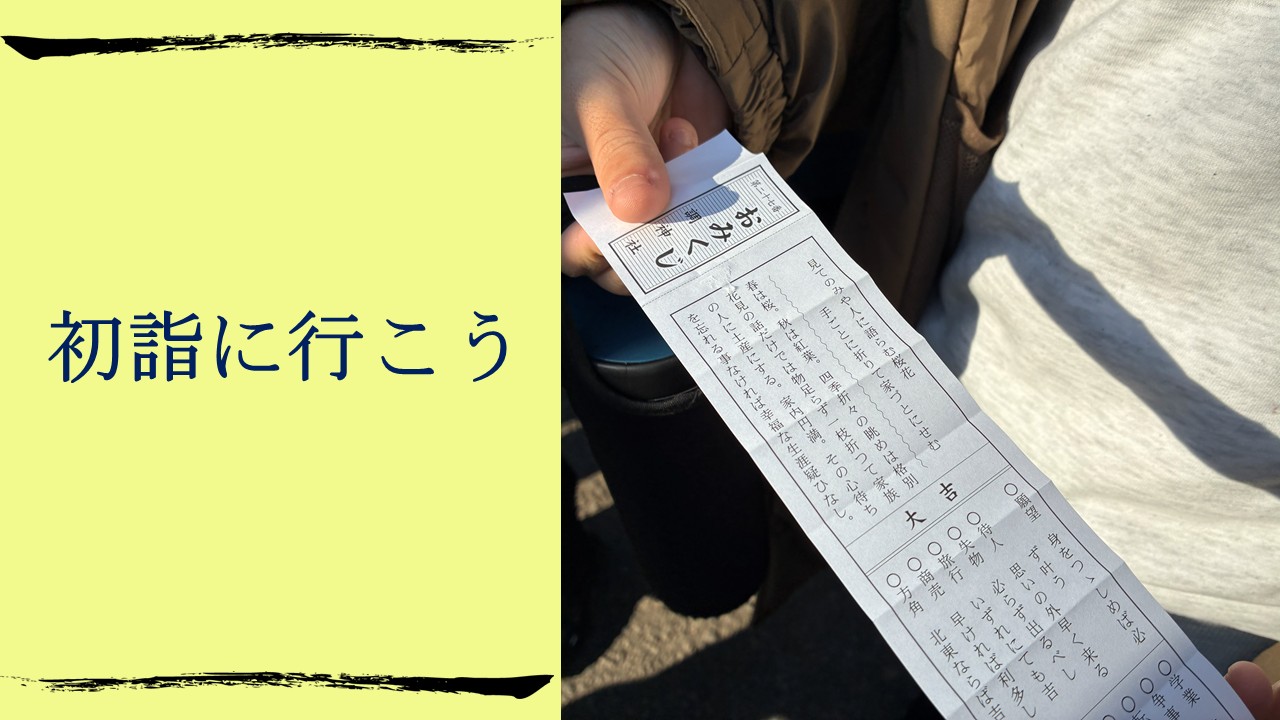 初詣に行こう
第二十七番
おみくじ
調神社
見てのみや人に語らむ桜花
手ごとに折りて家づとにせむ
春は桜。秋は紅葉。四季折々の眺めは格別
花見の話だけでは物足らず一枝折つて家族
の人に土産にする。家内円満。その心待ち
を忘れる事なければ幸福な生涯疑ひなし。
大吉
○願望 身をつゝしめば必
ず叶う
○待人 思いの外早く来る
○失物 必らず出るべし
○旅行 いずれにても吉
○商売 早ければ利多し
○方角 北東ならば吉
○学業
○争事